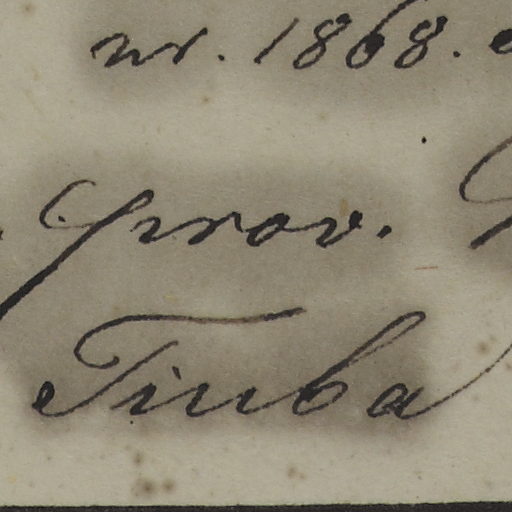 nr. 1868.
prov.
Tinba